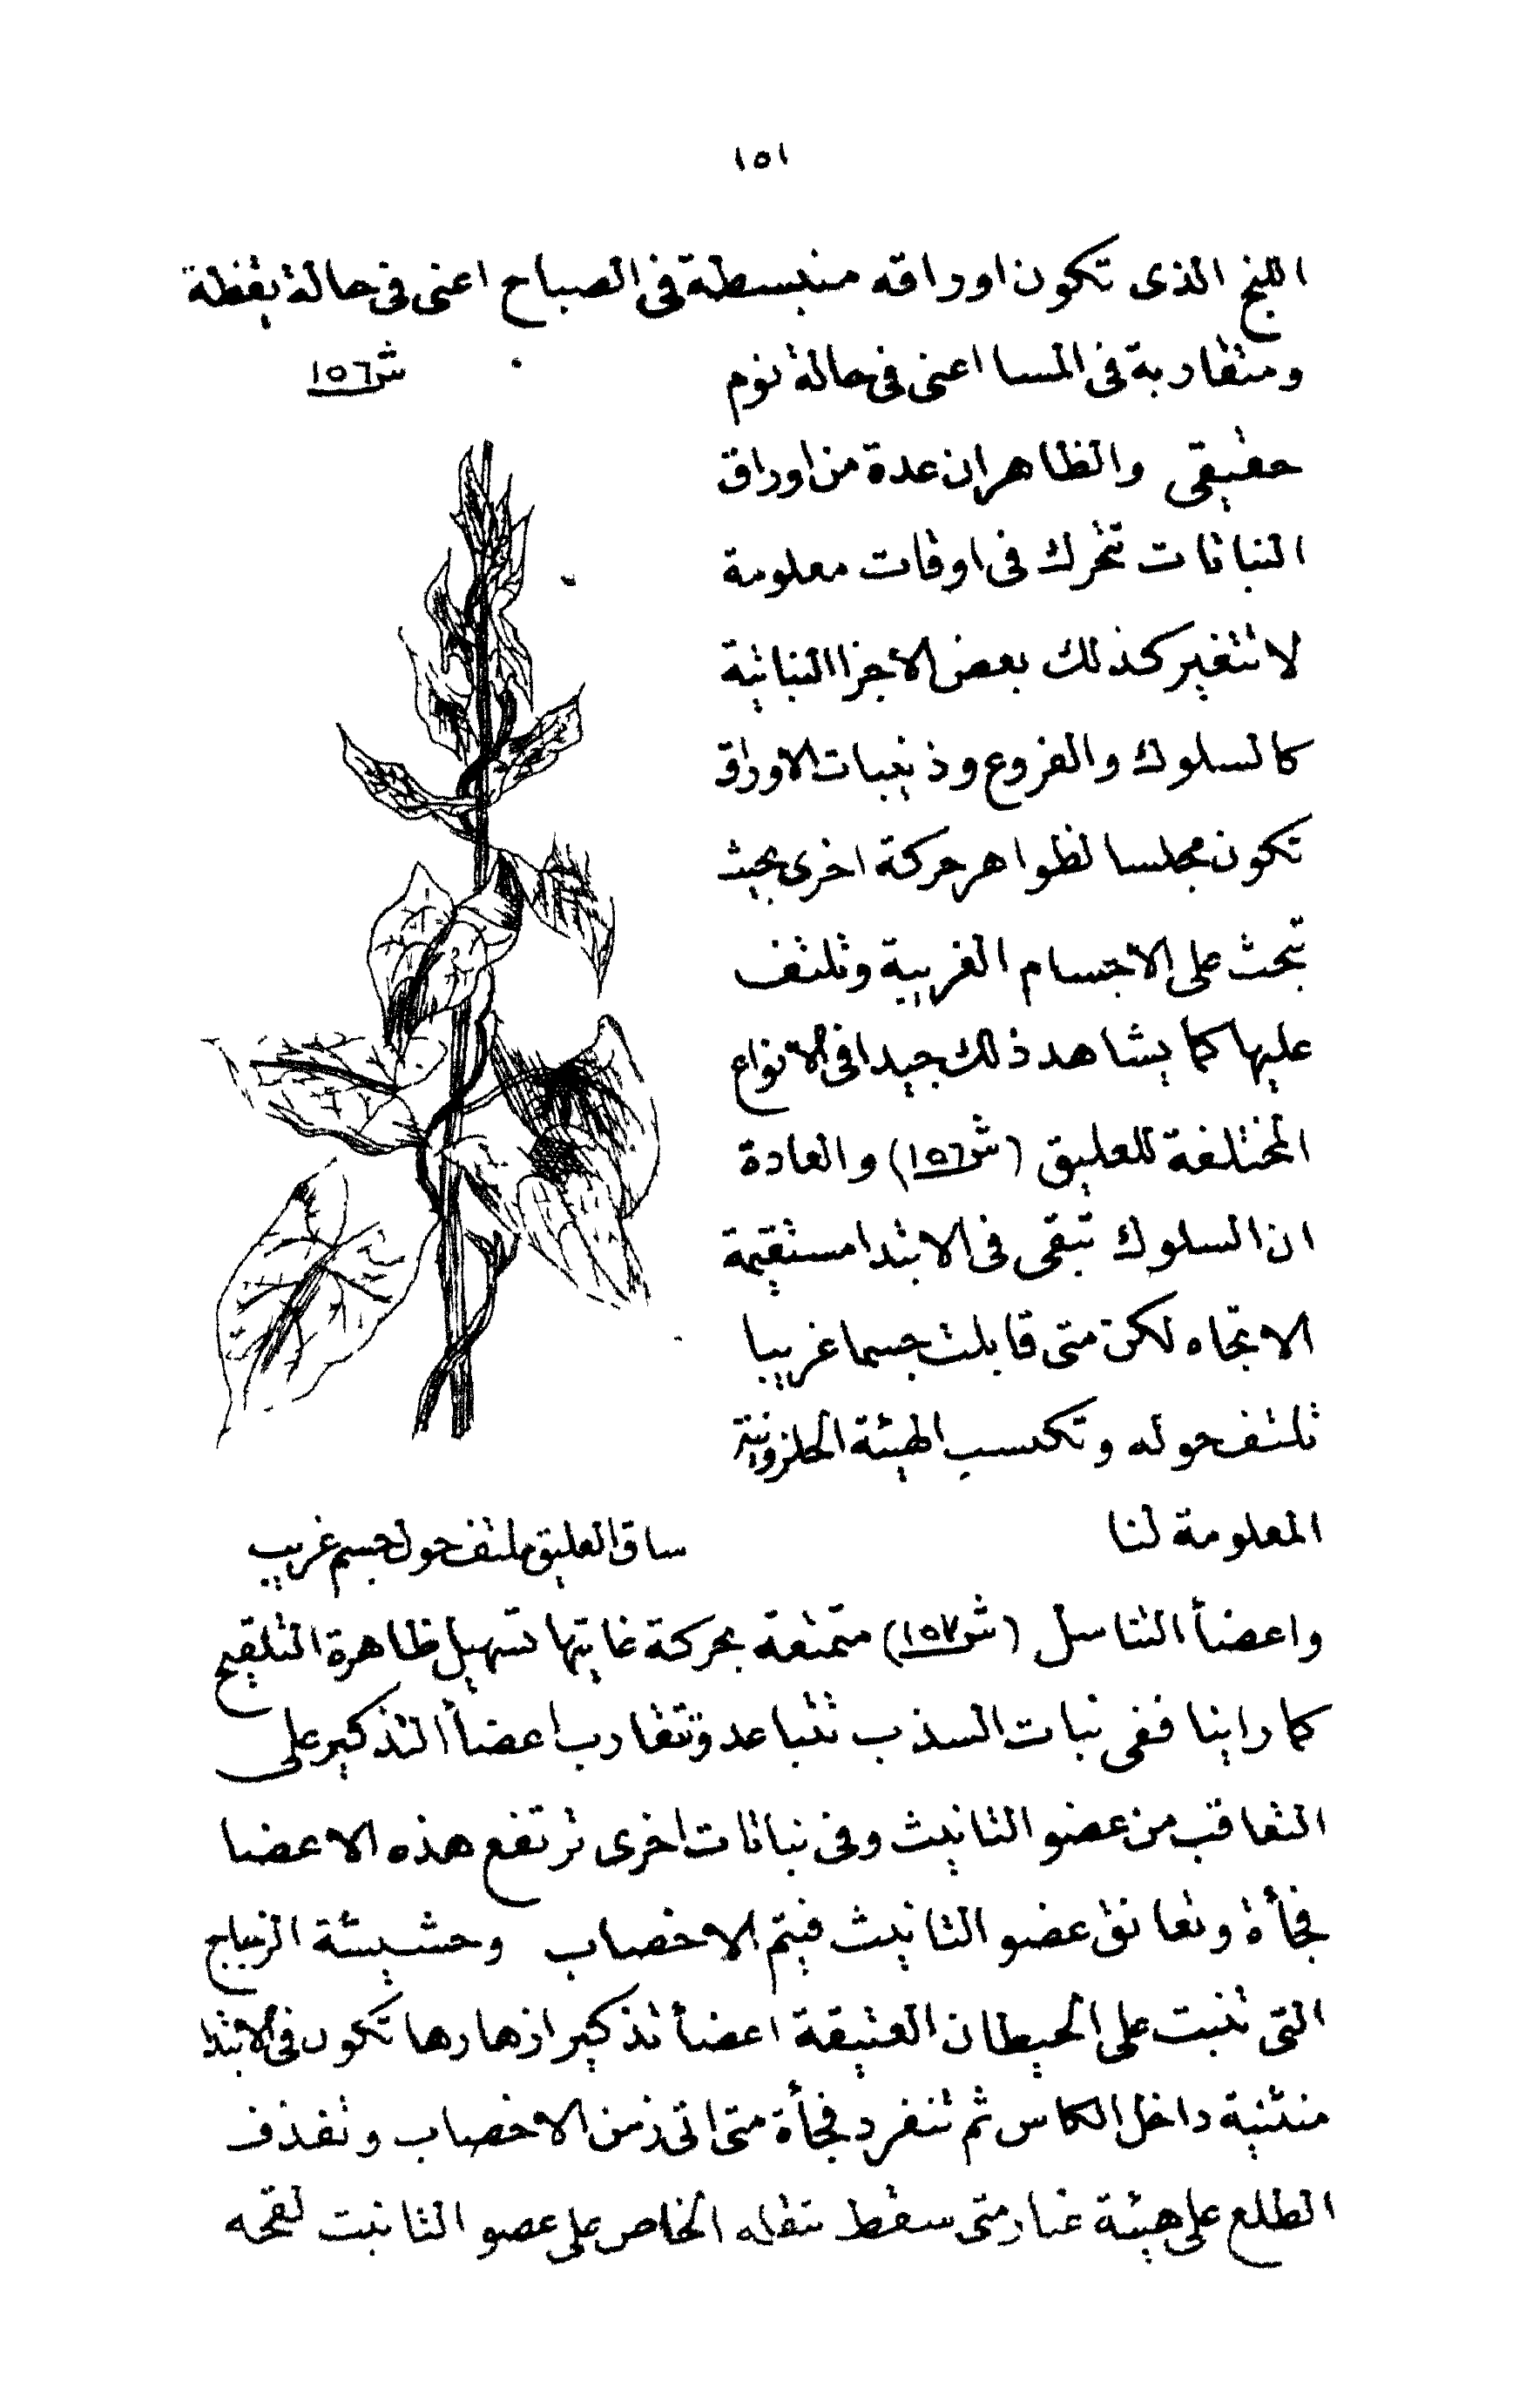 ١٥١
اللبخ الذى تكون اوراقه منبسطة فى الصباح اعنى فى حالة يقظة
ومتقاربة فى المسا اعنى فى حالة نوم
ش ١٥٦
حقيقى والظاهر ان عدة من اوراق
النباتات تتحرك فى اوقات معلومة
لا تتغير كذلك بعض الاجزا النباتية
كالسلوك والفروع وذنيبات الاوراق
تكون مجلسا لظواهر حركة اخرى بحيث
تبحث على الاجسام الغريبة وتلتف
عليها كما يشاهد ذلك جيدا فى الانواع
المختلفة للعليق (ش ١٥٦) والعادة
ان السلوك تبقى فى الابتدا مستقيمة
الاتجاه لكن متى قابلت جسما غريبا
تلتف حوله وتكتسب الهيئة الحلزونية
المعلومة لنا
ساق العليق ملتف حول جسم غريب
واعضأ التناسل (ش ١٥٧) متمتعة بحركة غايتها تسهيل ظاهرة التلقيح
كما راينا ففى نبات السذب تتباعد وتتقارب اعضأ التذكير على
التعاقب من عضو التانيث وفى نباتات اخرى ترتفع هذه الاعضا
فجأة وتعانق عضو التانيث فيتم الاخصاب وحشيشة الزجاج
التى تنبت على الحيطان العتيقة اعضأ تذكير ازهارها تكون فى الابتدا
منثنية داخل الكاس ثم تنفرد فجأة متى اتى زمن الاخصاب وتقذف
الطلع على هيئة غبار متى سقط بثقله الخاص على عضو التانيث لقحه